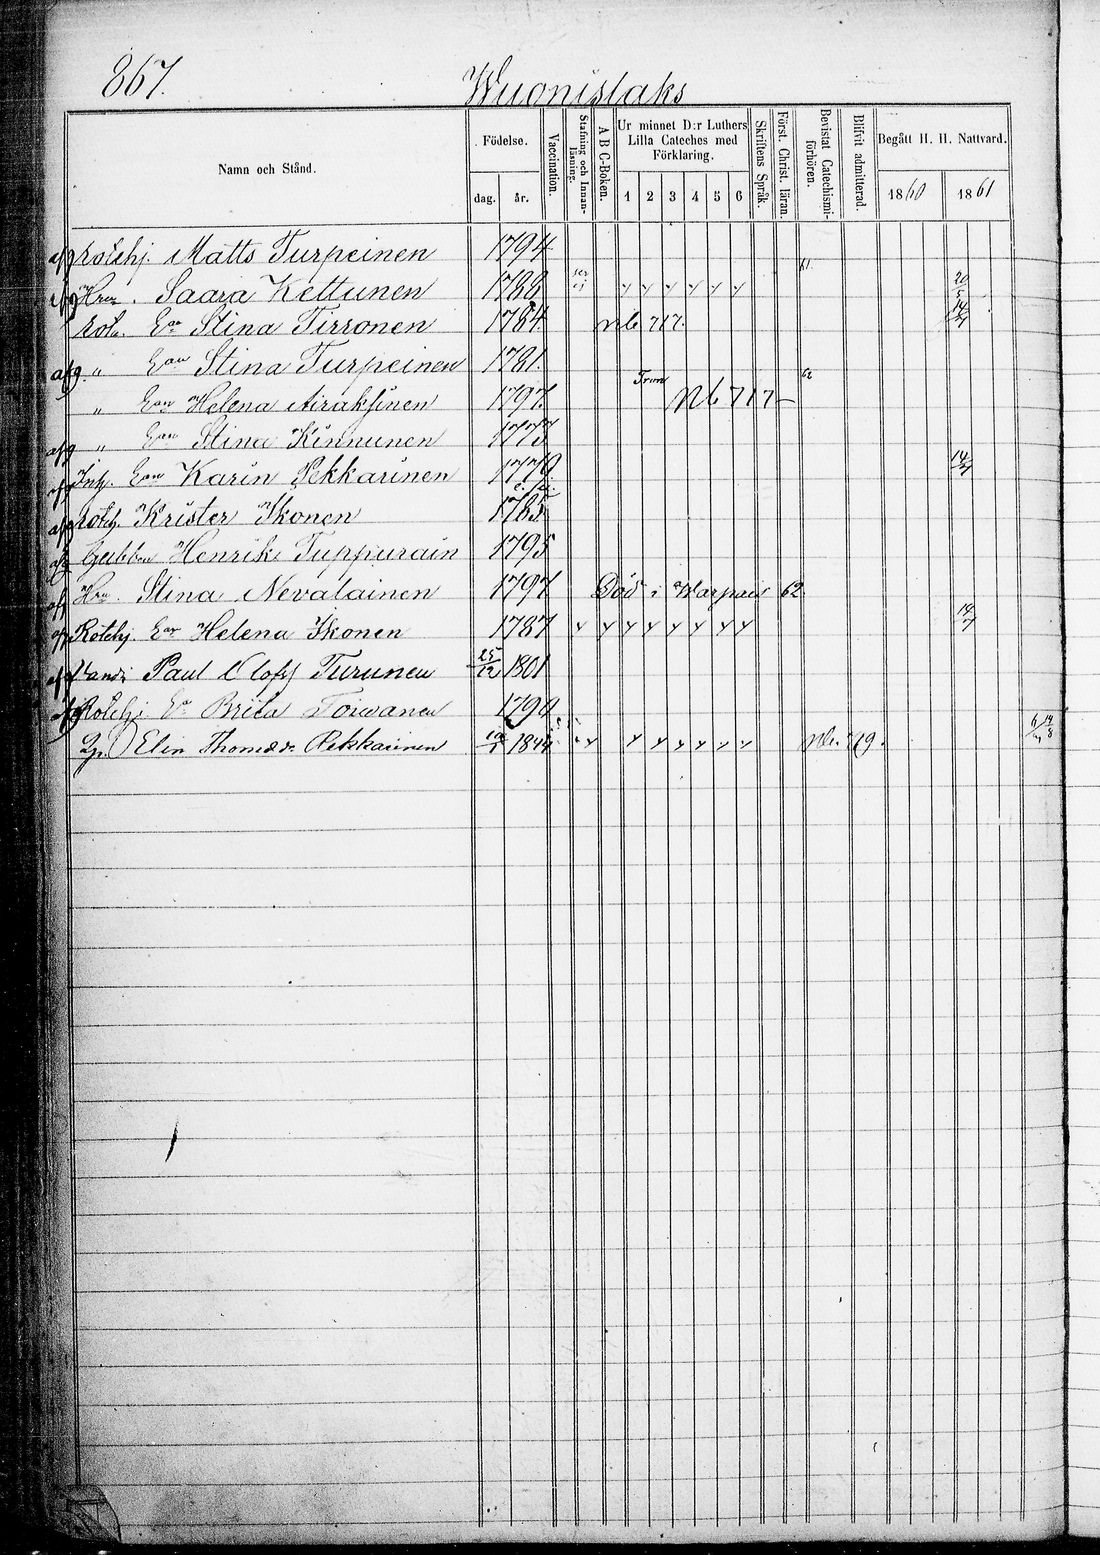 867.
Wuonislaks
Namn och Stånd.
Födelse.
dag. år.
Vaccination.
Stafning och Innanläsning.
A B C-Boken.
Ur minnet D:r Luthers Lilla Cateches med Förklaring.
1 2 3 4 5 6
Skriftens Språk.
Först. Christ. läran.
Bevistat Catechismi-förhören.
Blifvit admitterad.
Begått H. H. Nattvard.
1860 1861
afg Rotehj. Matts Turpeinen 1794
afg Hru. Saara Kettunen 1788 y y y y y y 61. 20/5
Rote. Ean Stina Tirronen 1784 Nb 717. 14/7
afg. " Ean Stina Turpeinen 1781.
" Ean Helena Airaksinen 1797. Nb 717 62
afg " Ean Stina Kinnunen 1775
afg Inh. Ean Karin Pekkarinen 1779 14/7
afg Rotehj. Krister Ikonen 1785.
afg Gubben Henrik Tuppurain 1795
afg Hru. Stina Nevalainen 1797 Död i Warpais 62.
afg Rotehj. Ean Helena Ikonen 1787 y y y y y y y y 14/7
afg Paul Olofsj Turunen 25/12 1801
afg Rotehj Ea Brita Toiwanen 1790
Elin Thomasdr Pekkarinen 10/1 1844 y y y y y y y Nb. 719. 14/8